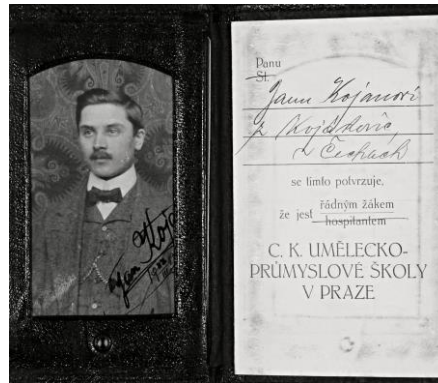 Jan Koja
Panu
Sl.
Janu Kojanovi
z
v Čechách
se tímto potvrzuje,
že jest řádným žákem
hospitantem
C. K. UMĚLECKO-
PRŮMYSLOVÉ ŠKOLY
V PRAZE